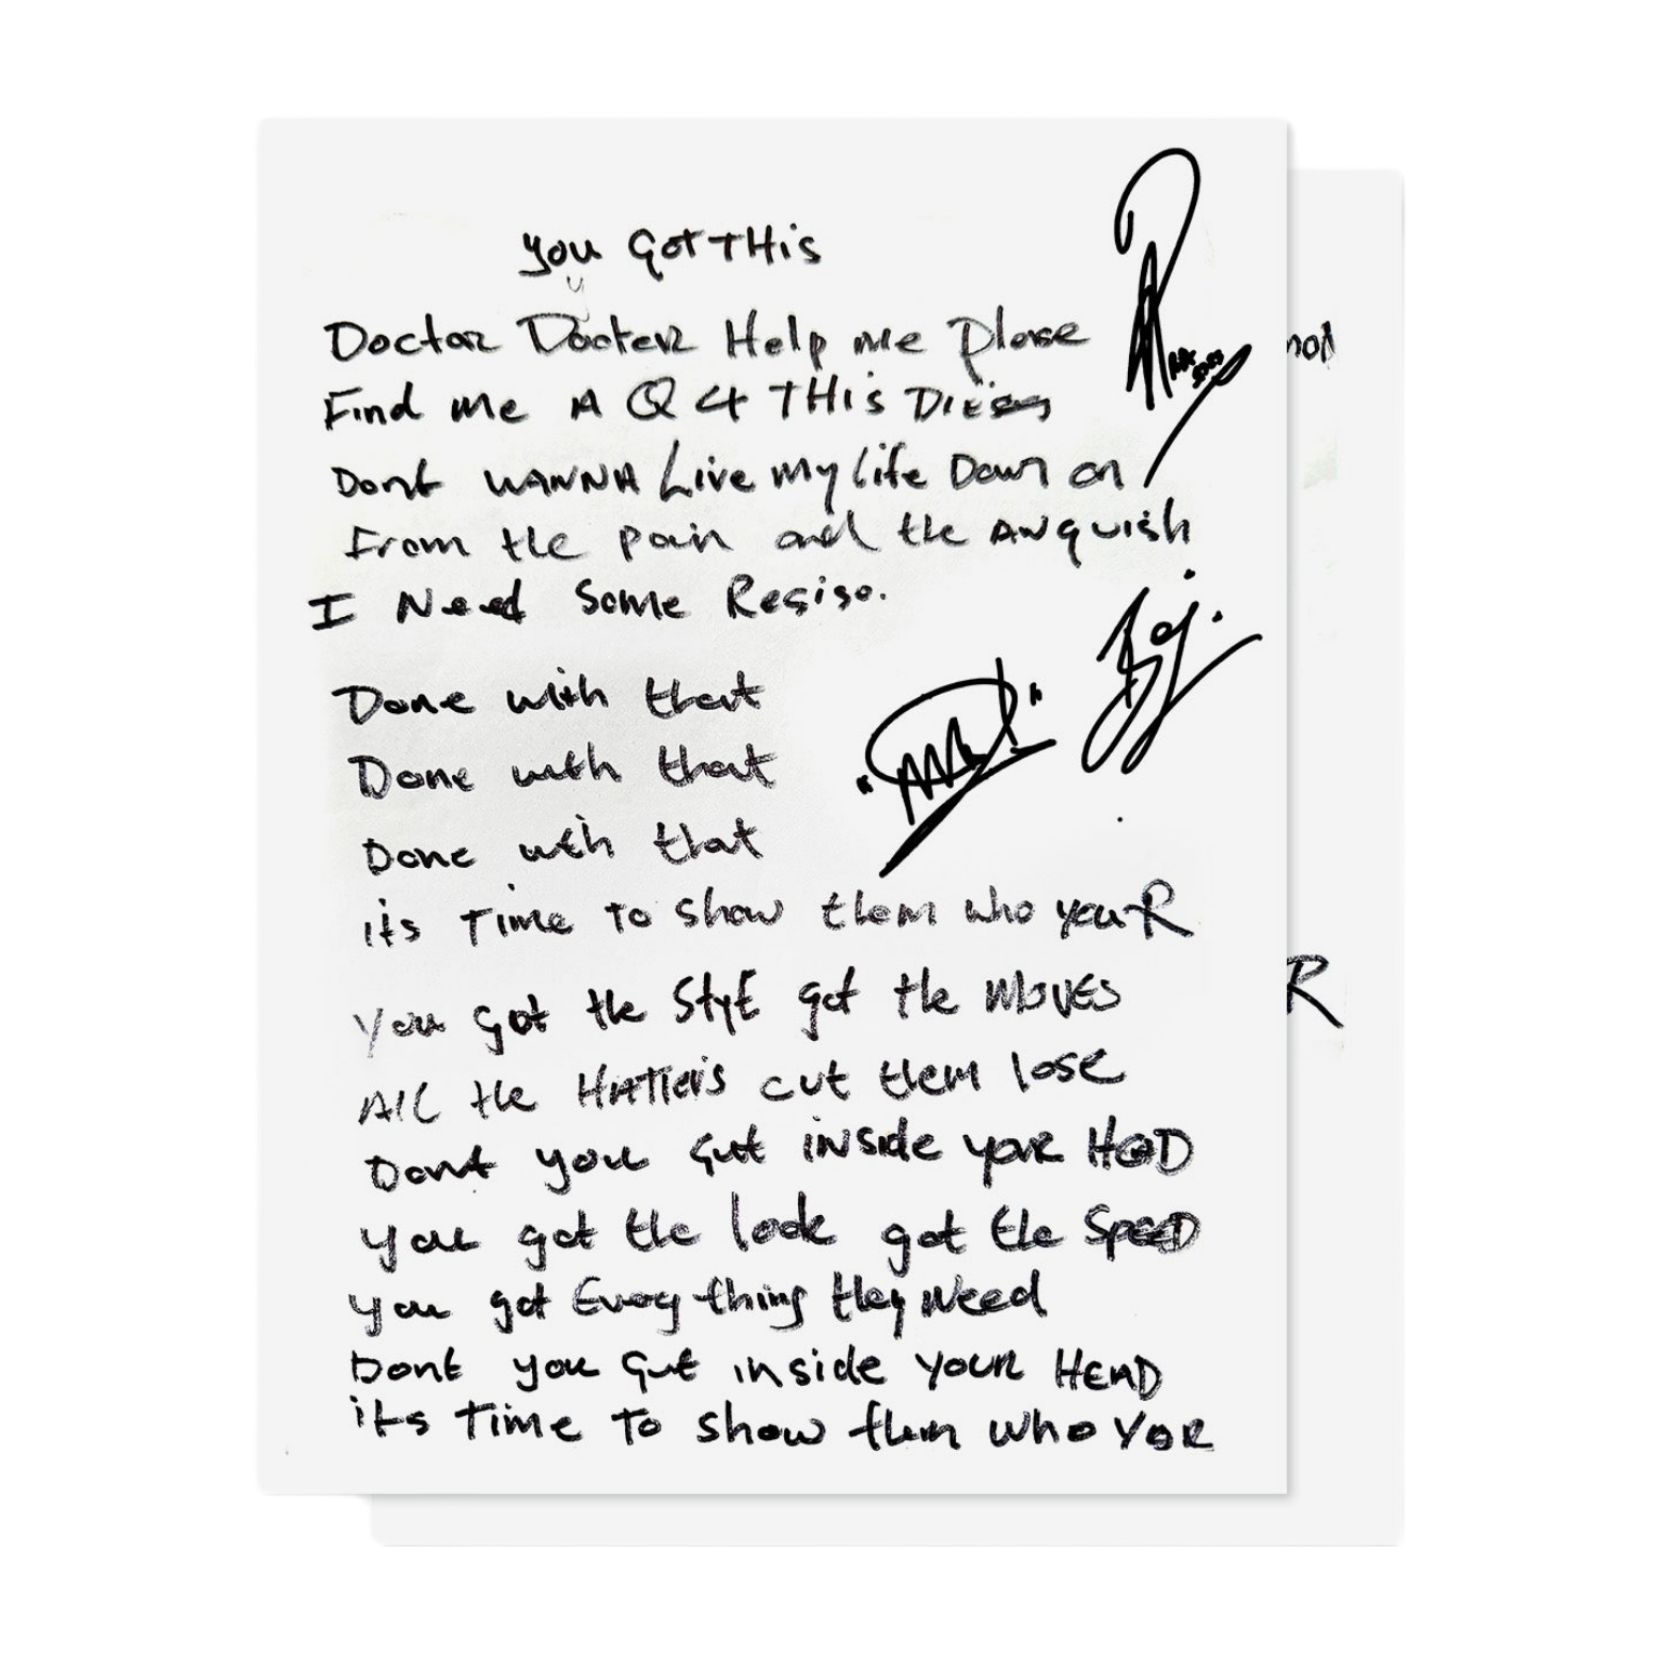 you GOT THis
Doctor Doctor Help me Please
Find me A Q 4 THis
Dont WANNA Live my life Down on
From the pain and the ANguish
I Need Some
Done with that
Done with that
Done with that
its Time To show them who you R
non
You got the StyE got the MOVES
R
All the HATTERS cut them lose
Dont you Gut iNside your HEAD
you got the look got the SPEED
you got Everything they Need
Dont you Gut inside YOUR HEAD
its Time To show them who YOR